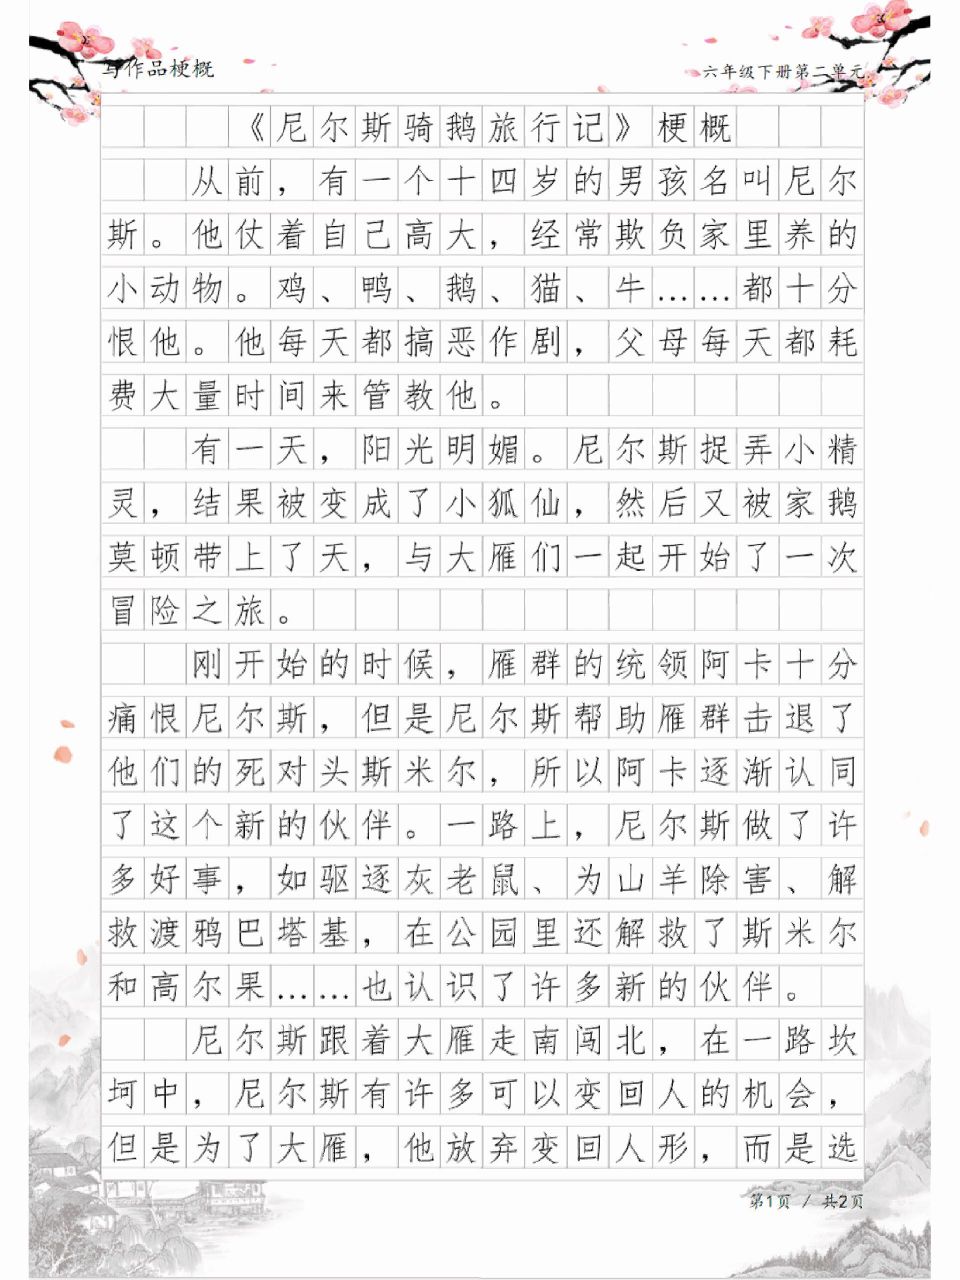 写作品梗概
六年级下册第二单元
《尼尔斯骑鹅旅行记》梗概
从前，有一个十四岁的男孩名叫尼尔
斯。他仗着自己高大，经常欺负家里养的
小动物。鸡、鸭、鹅、猫、牛……都十分
恨他。他每天都搞恶作剧，父母每天都耗
费大量时间来管教他。
有一天，阳光明媚。尼尔斯捉弄小精
灵，结果被变成了小狐仙，然后又被家鹅
莫顿带上了天，与大雁们一起开始了一次
冒险之旅。
刚开始的时候，雁群的统领阿卡十分
痛恨尼尔斯，但是尼尔斯帮助雁群击退了
他们的死对头斯米尔，所以阿卡逐渐认同
了这个新的伙伴。一路上，尼尔斯做了许
多好事，如驱逐灰老鼠、为山羊除害、解
救渡鸦巴塔基，在公园里还解救了斯米尔
和高尔果……也认识了许多新的伙伴。
尼尔斯跟着大雁走南闯北，在一路坎
坷中，尼尔斯有许多可以变回人的机会，
但是为了大雁，他放弃变回人形，而是选
第1页 / 共2页